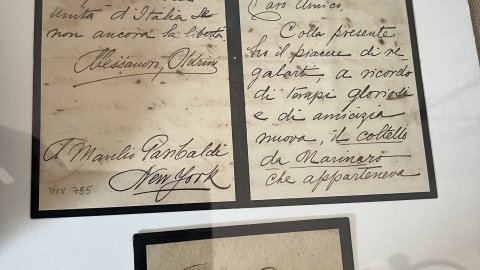 Unità d'Italia se
non ancora la libertà
Alessandro, Oldrini
A Manlio Garibaldi
New York
INV 785
Caro Amico,
Colla presente
ho il piacere di re
galarti, a ricordo
di tempi gloriosi
e di amicizia
nuova, il coltello
da Marinaro
che apparteneva